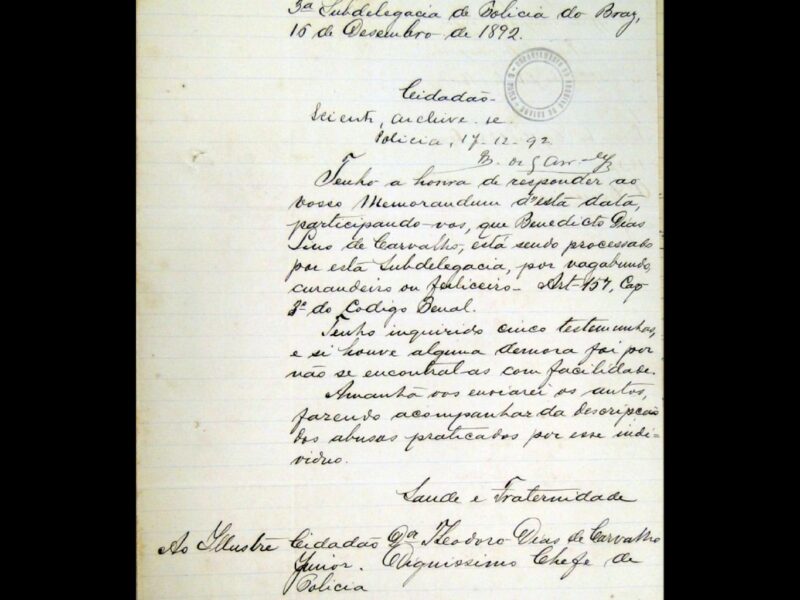 3ª Subdelegacia de Policia do Braz,
15 de Desembro de 1892.
Cidadão
Sciente, archive-se
Policia, 17-12-92
Tenho a honra de responder ao
vosso Memorandum d'esta data,
participando-vos, que Benedicto Dias
Lino de Carvalho, está sendo processado
por esta Subdelegacia, por vagabundo,
curandeiro ou feiticeiro - Art-157, Cap
3º do Codigo Penal.
Tenho inquirido cinco testemunhas,
e si houve alguma demora foi por
não se encontral-as com facilidade.
Amanhã vos enviarei os autos,
fazendo acompanhar da descripcão
dos abusos praticados por esse indi-
viduo.
Saude e Fraternidade
Ao Illustre Cidadão Dor Theodoro Dias de Carvalho
Junior. Dignissimo Chefe de
Policia